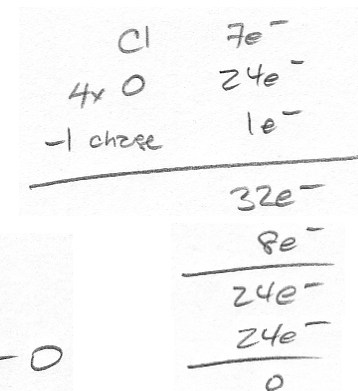 Cl 7e⁻
4x O 24e⁻
-1 charge 1e⁻
32e⁻
8e⁻
24e⁻
24e⁻
- O 0